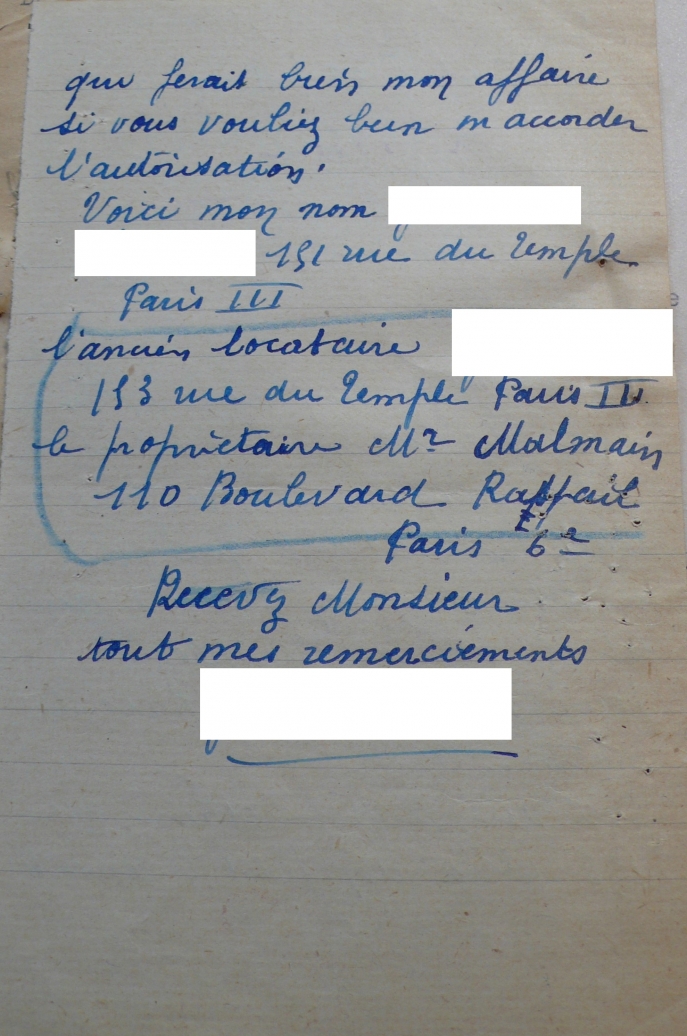 qui ferait bien mon affaire
si vous vouliez bien m accorder
l'autorisation.
Voici mon nom
151 rue du Temple
Paris III
l'ancien locataire
153 rue du Temple Paris III
le propriètaire Mr Malmain
110 Boulevard Raspail
Paris 6e
Recevez Monsieur
tout mes remerciements